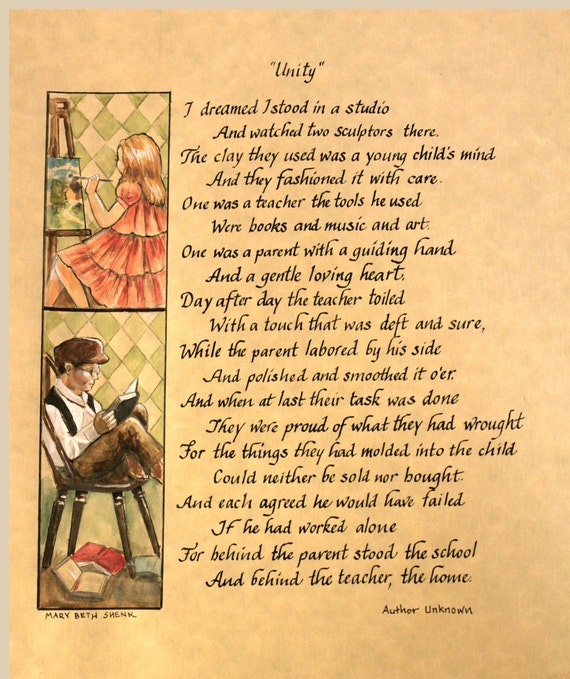 "Unity"
I dreamed I stood in a studio
And watched two sculptors there.
The clay they used was a young child's mind
And they fashioned it with care.
One was a teacher the tools he used
Were books and music and art.
One was a parent with a guiding hand
And a gentle loving heart.
Day after day the teacher toiled
With a touch that was deft and sure,
While the parent labored by his side
And polished and smoothed it o'er.
And when at last their task was done
They were proud of what they had wrought
For the things they had molded into the child
Could neither be sold nor bought.
And each agreed he would have failed
If he had worked alone
For behind the parent stood the school
And behind the teacher, the home.
MARY BETH SHENK
Author Unknown